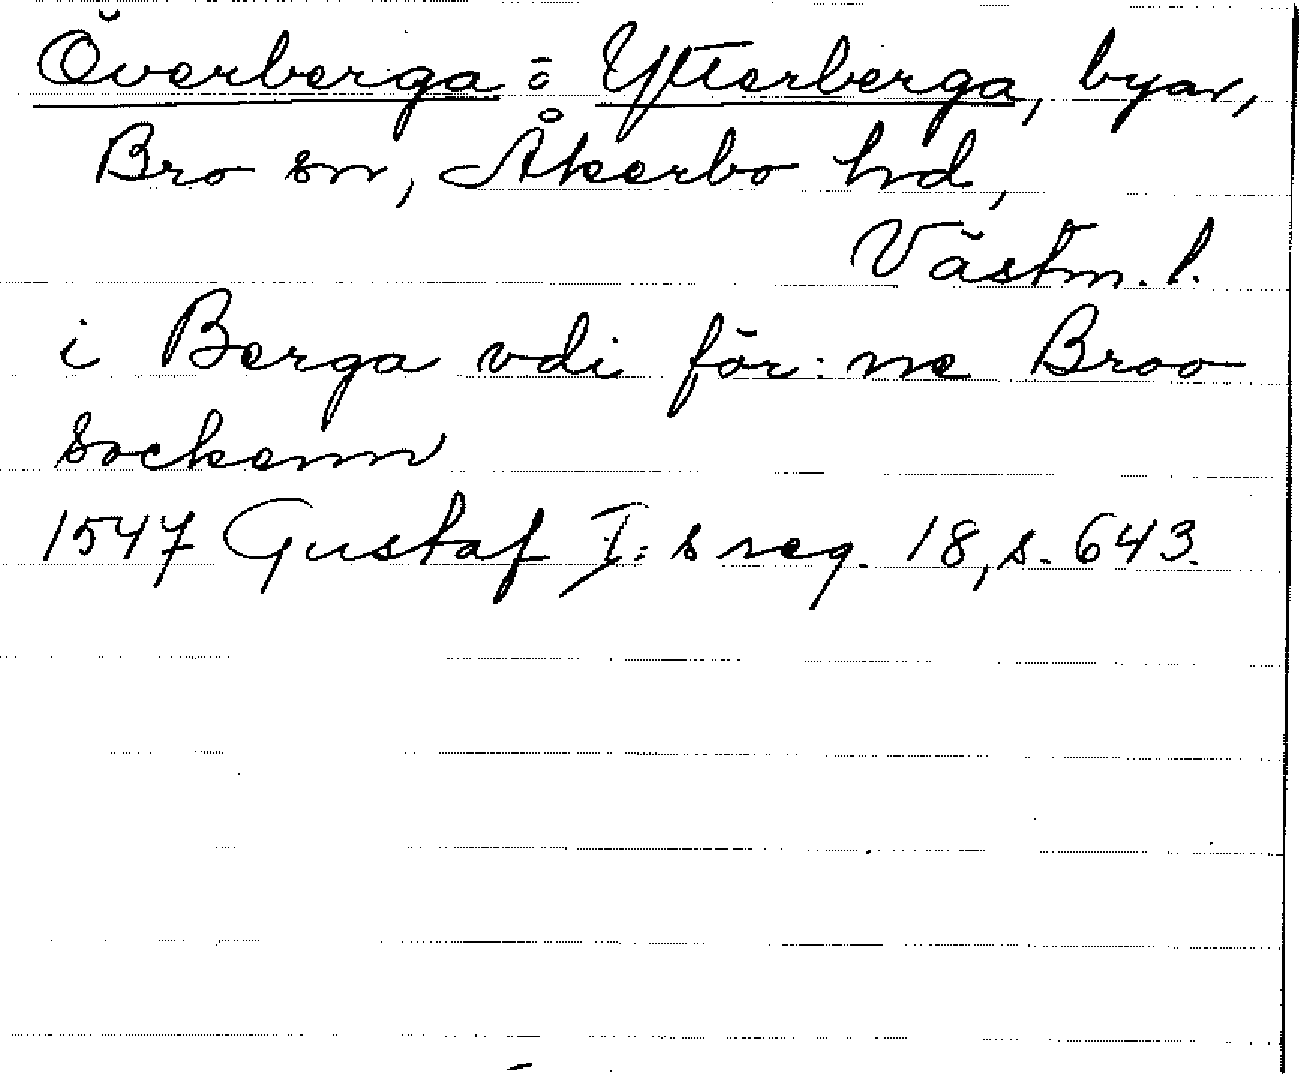 Överberga o. Ytterberga, byar,
Bro sn, Åkerbo hd,
Västm. l.
i Berga vdi för:ne Broo
sockenn
1547 Gustaf I:s reg. 18, s. 643.